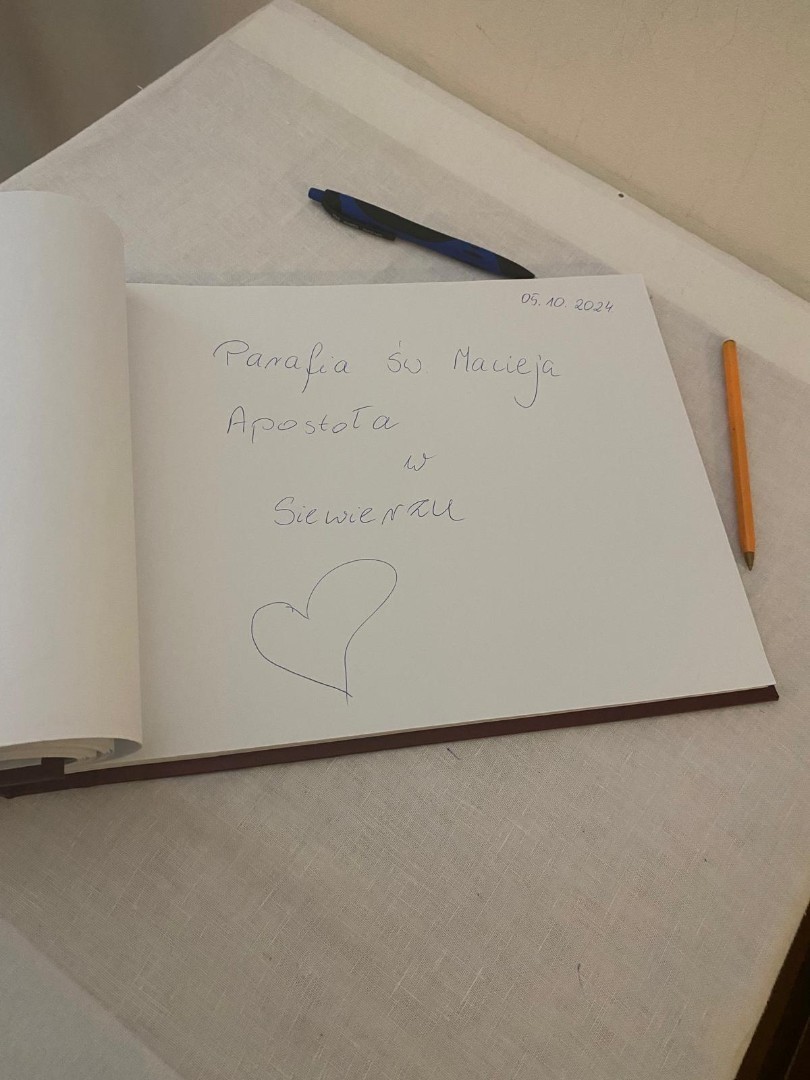 05.10.2024
Parafia św Macieja
Apostoła
w
Siewierzu